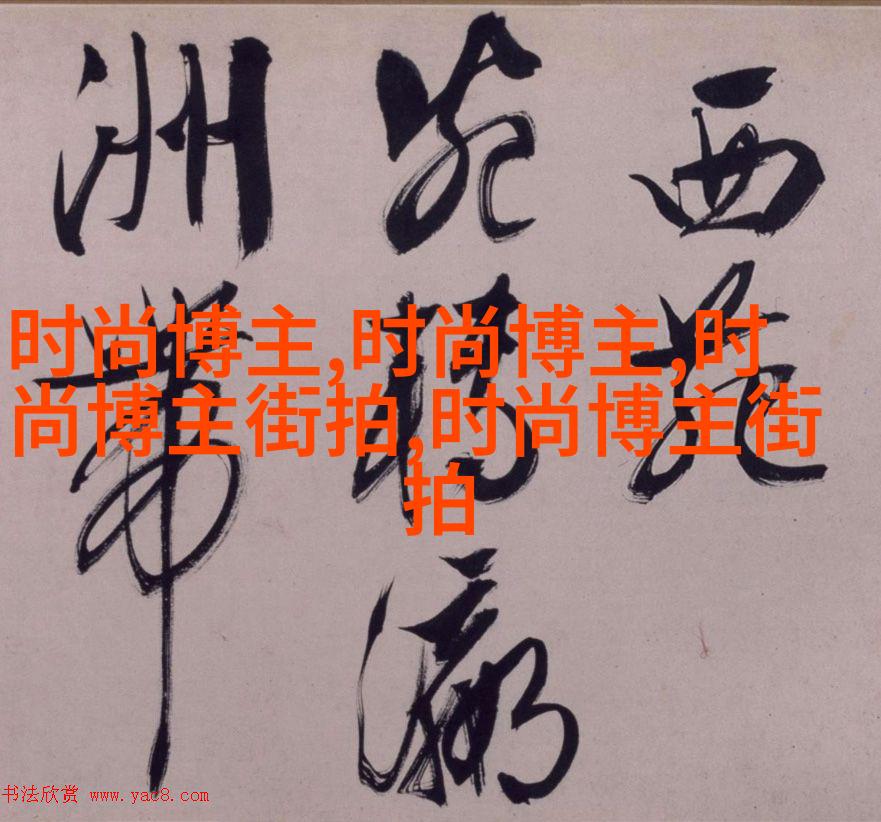 西苑
瀛
洲带
时尚博主,时尚博主,时
尚博主街拍,时尚博主街
拍
书法欣赏 www.yac8.com